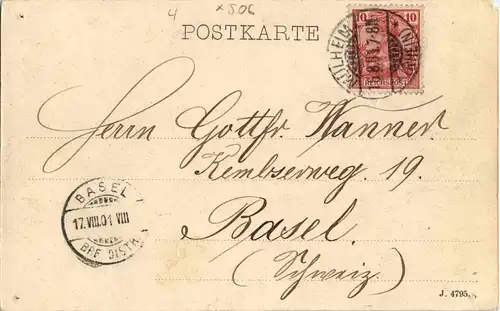 4 x506
POSTKARTE
10 10
REICHSPOST
Herrn Gottfr. Wanner.
Kembserweg. 19.
Basel.
(Schweiz)
BASEL 1
17.VIII.01 VIII
BRF. DISTR.
J. 4795.